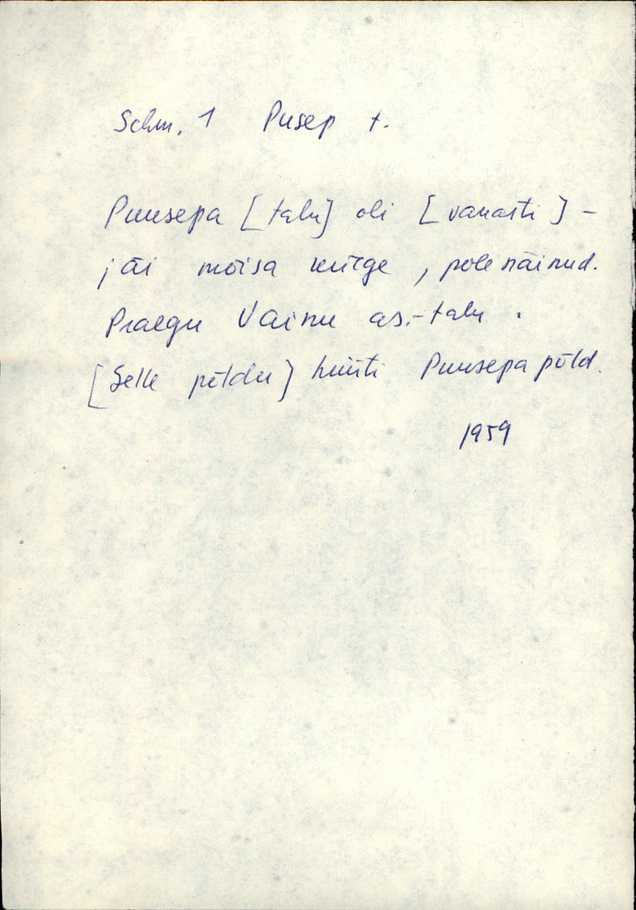 Schm. 1 Pusep t.
Puusepa [talu] oli [vanasti] -
jäi mõisa külge, pole näinud.
Praegu Vainu as.-talu.
[Selle põldu] hüüti Puusepa põld.
1959